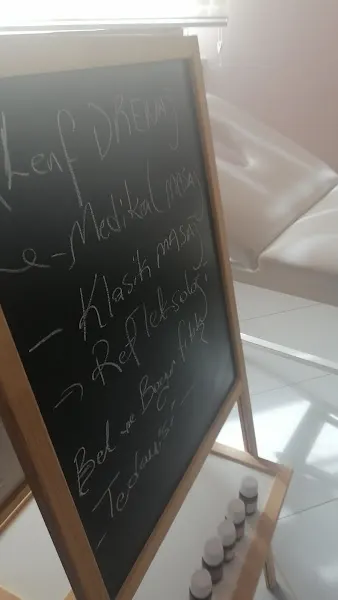 Lenf DRENAJ
- Medikal masaj
- Klasik masaj
→ Refleksoloji
Bel ve Boyun fıtığı
Tedavisi